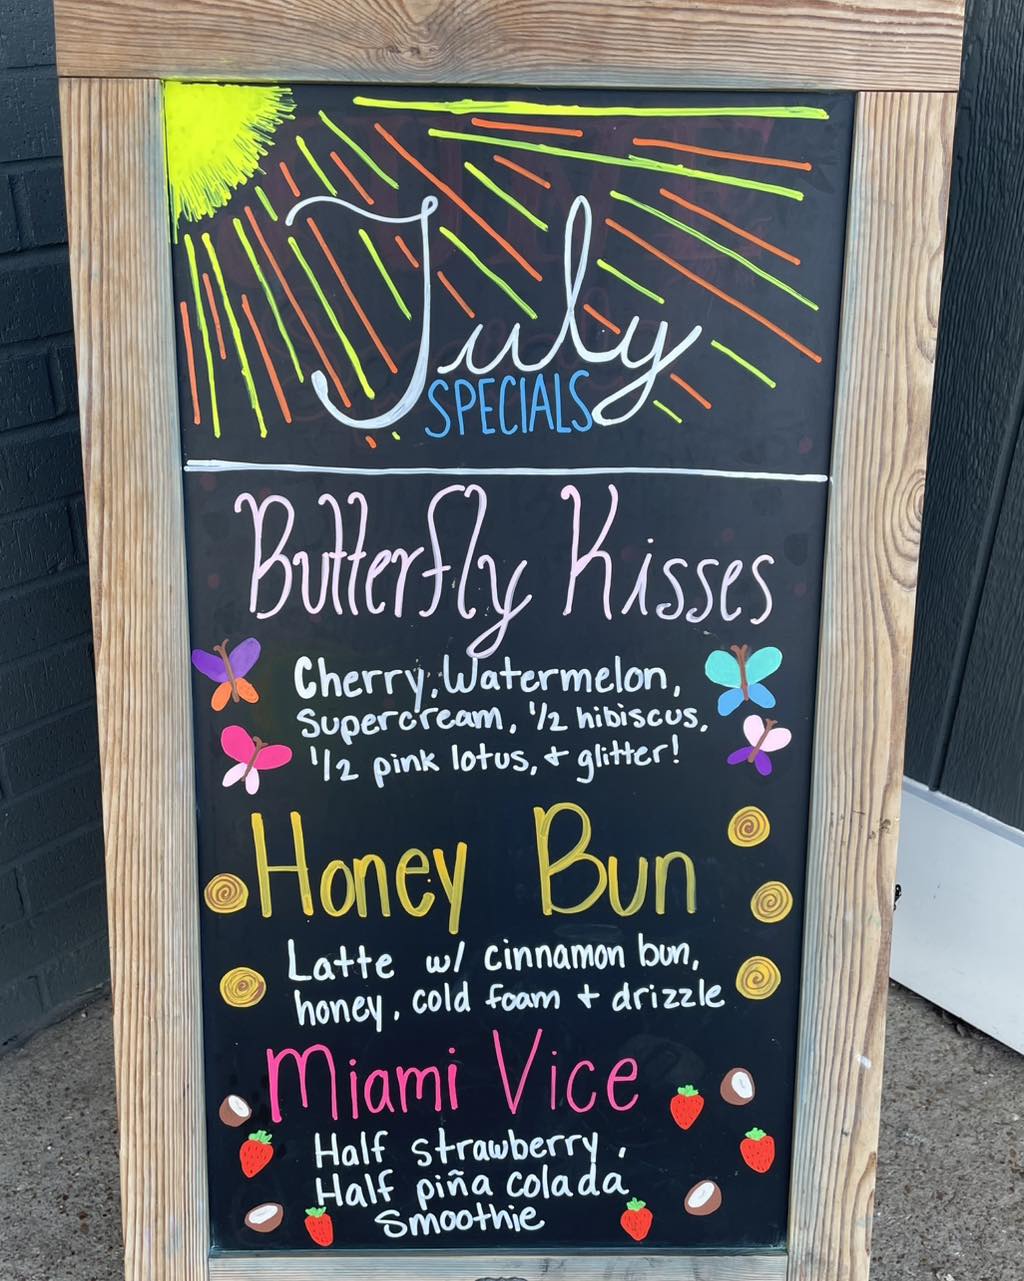 July
SPECIALS
Butterfly Kisses
Cherry, Watermelon,
Supercream, 1/2 hibiscus,
1/2 pink lotus, + glitter!
Honey Bun
Latte w/ cinnamon bun,
honey, cold foam + drizzle
Miami Vice
Half strawberry,
Half piña colada
Smoothie